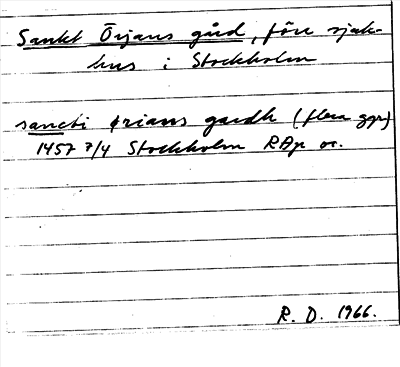 Sankt Örjans gård, före sjuk-
hus i Stockholm
sancti ørians gardh (flera ggr)
1457 7/4 Stockholm RAp or.
R. D. 1966.